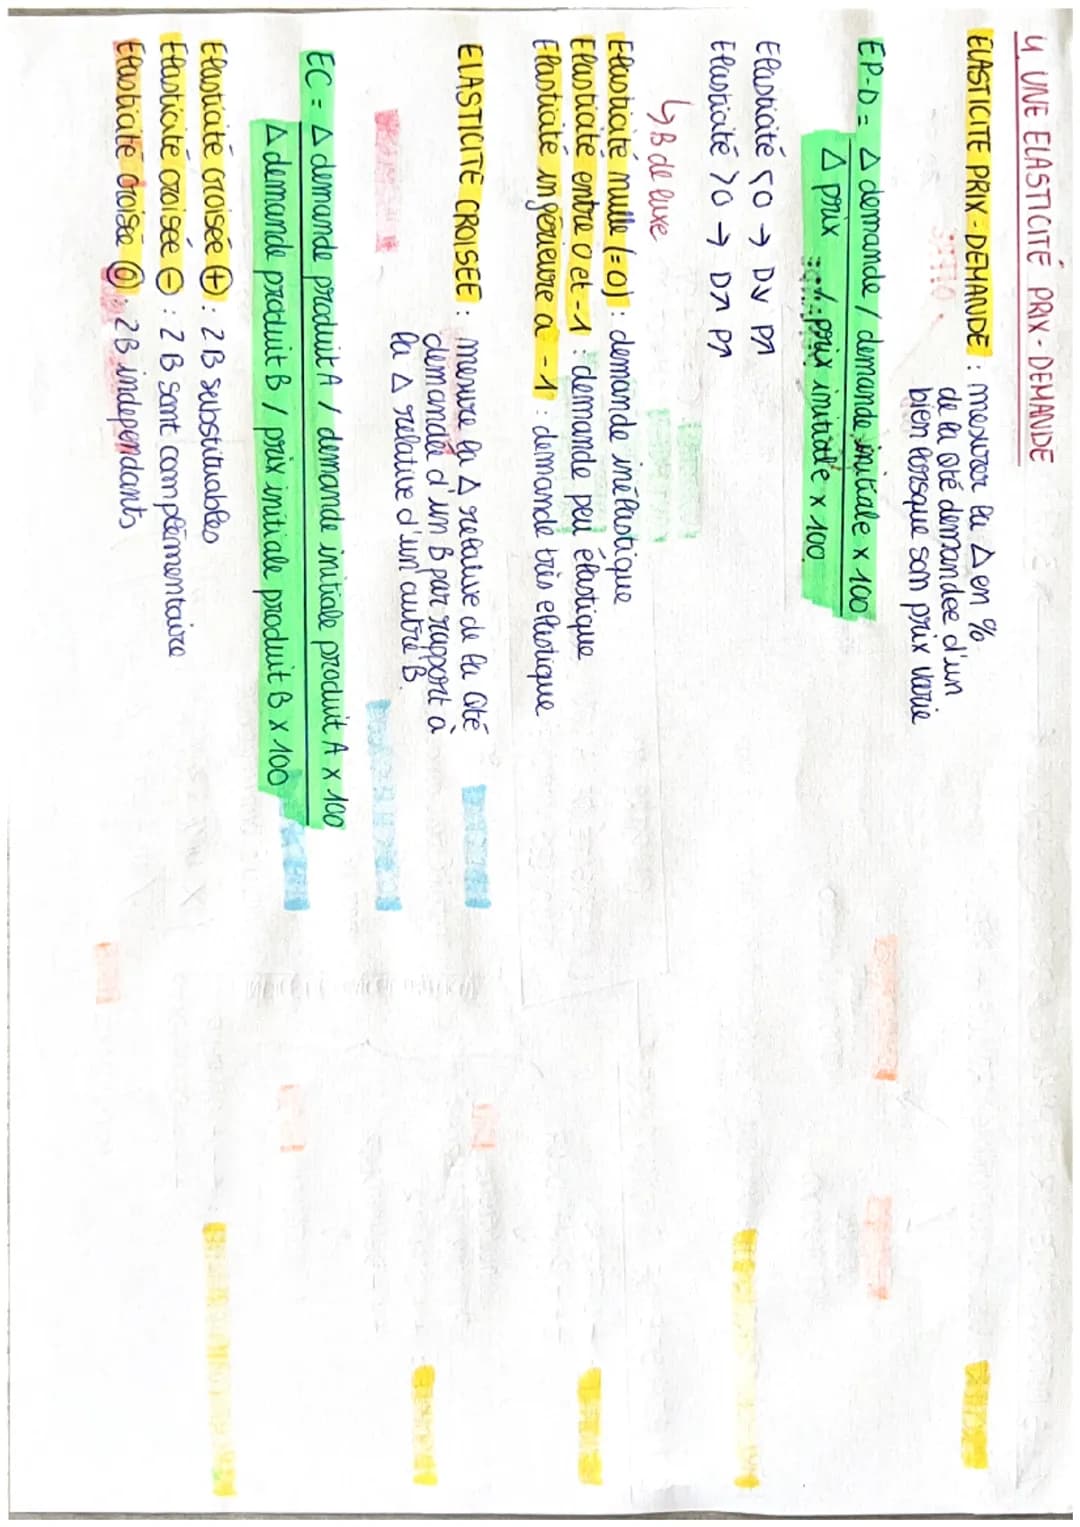 4. UNE ELASTICITÉ PRIX-DEMANDE
ELASTICITE PRIX-DEMANDE : mesurer la Δ en %
de la qté demandée d'un
bien lorsque son prix varie
EP-D = Δ demande / demande initiale x 100
Δ prix / prix initiale x 100
Elasticité <0 → D↘ P↗
Elasticité >0 → D↗ P↗
↳ B de luxe
Elasticité nulle (=0) : demande inélastique
Elasticité entre 0 et -1 : demande peu élastique
Elasticité inférieure a -1 : demande très elastique
ELASTICITE CROISEE : mesure la Δ relative de la qté
demandée d'un B par rapport à
la Δ relative d'un autre B.
EC = Δ demande produit A / demande initiale produit A x 100
Δ demande produit B / prix initiale produit B x 100
Elasticité croisée + : 2 B substituables
Elasticité croisée - : 2 B sont complémentaire
Elasticité croisée 0 : 2 B independants